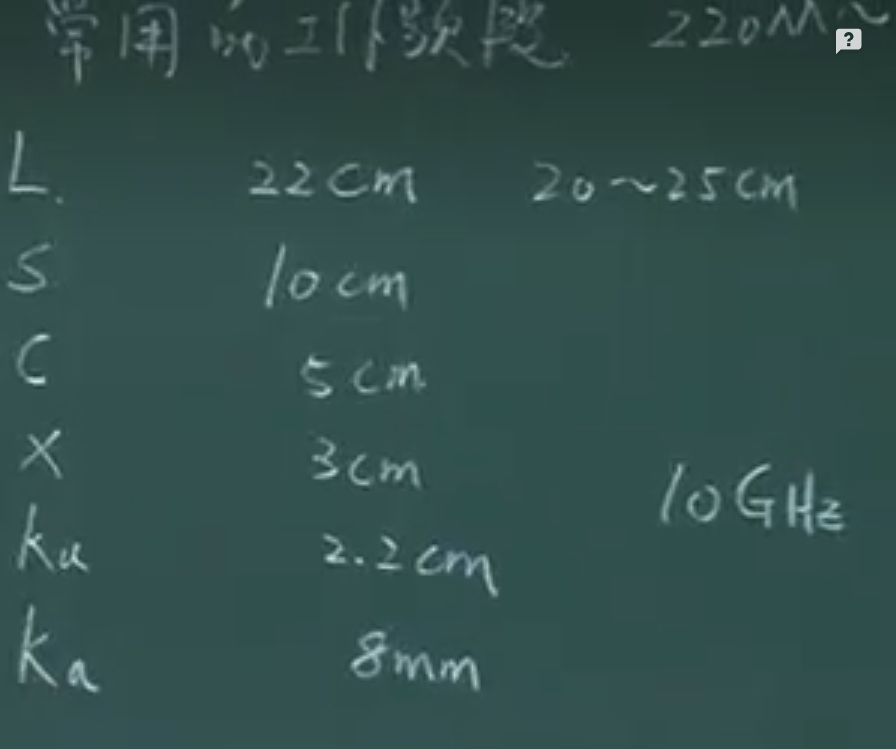 常用的工作频段 220M~
L. 22cm 20~25cm
S 10cm
C 5cm
X 3cm 10GHz
Ku 2.2cm
Ka 8mm